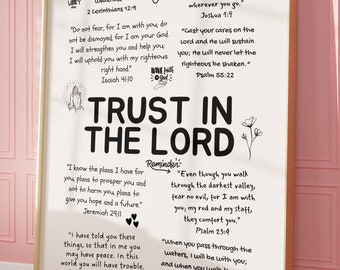 wherever you go."
2 Corinthians 12:9
Joshua 1:9
"Do not fear, for I am with you; do
not be dismayed, for I am your God.
I will strengthen you and help you;
I will uphold you with my righteous
right hand."
Isaiah 41:10
"Cast your cares on the
Lord and He will sustain
you; He will never let the
righteous be shaken."
Psalm 55:22
TRUST IN
THE LORD
Reminder
"I know the plans I have for
you, plans to prosper you and
not to harm you, plans to
give you hope and a future."
Jeremiah 29:11
"Even though you walk
through the darkest valley,
fear no evil, for I am with
you; my rod and my staff,
they comfort you."
Psalm 23:4
"I have told you these
things, so that in me you
may have peace. In this
world you will have trouble.
"When you pass through the
waters, I will be with you;
and when you walk